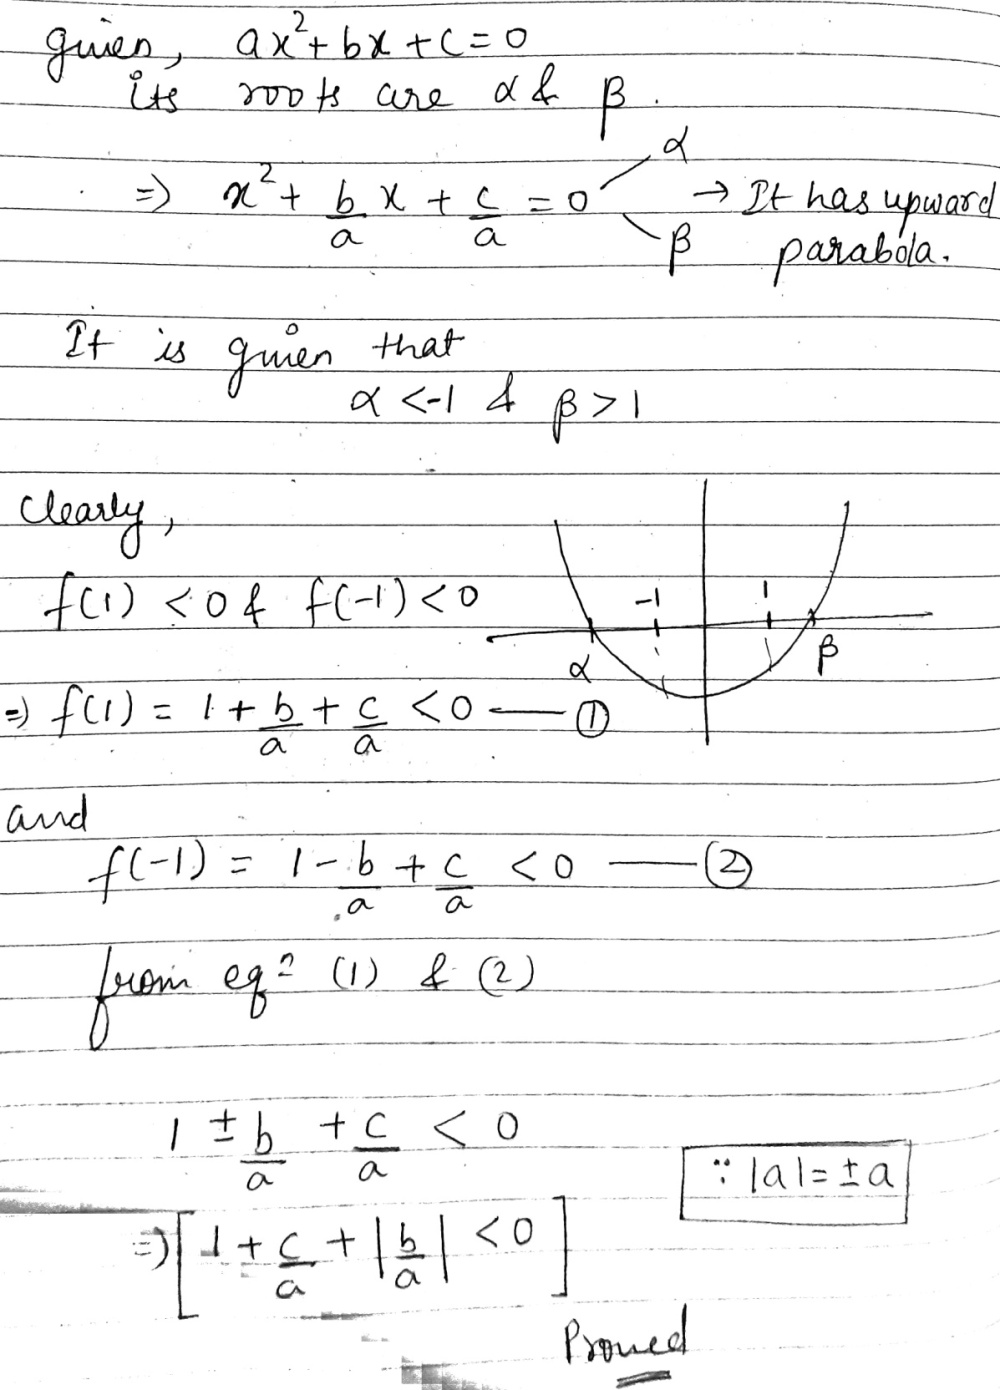 given, ax²+bx+c=0
its roots are α & β.
⇒ x²+ b/a x + c/a = 0 α β → It has upward parabola.
It is given that
α <-1 & β>1
Clearly,
f(1) <0 & f(-1)<0
-1 1
α β
⇒ f(1) = 1+b/a+c/a <0 — ①
and
f(-1) = 1-b/a+c/a <0 — ②
from eqⁿ (1) & (2)
1 ± b/a + c/a < 0
∵ |a|=±a
⇒ [1+c/a+|b/a| <0]
Proved